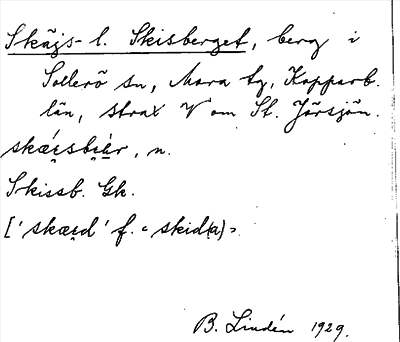 Skäjs- l. Skisberget, berg i
Sollerö sn, Mora tg, Kopparb.
län, strax V om St. Jörsjön.
skǽi̯sbi̯ær, n.
Skissb. Gk.
['skæi̯d' f. < skid(a) >
B. Lindén 1929.